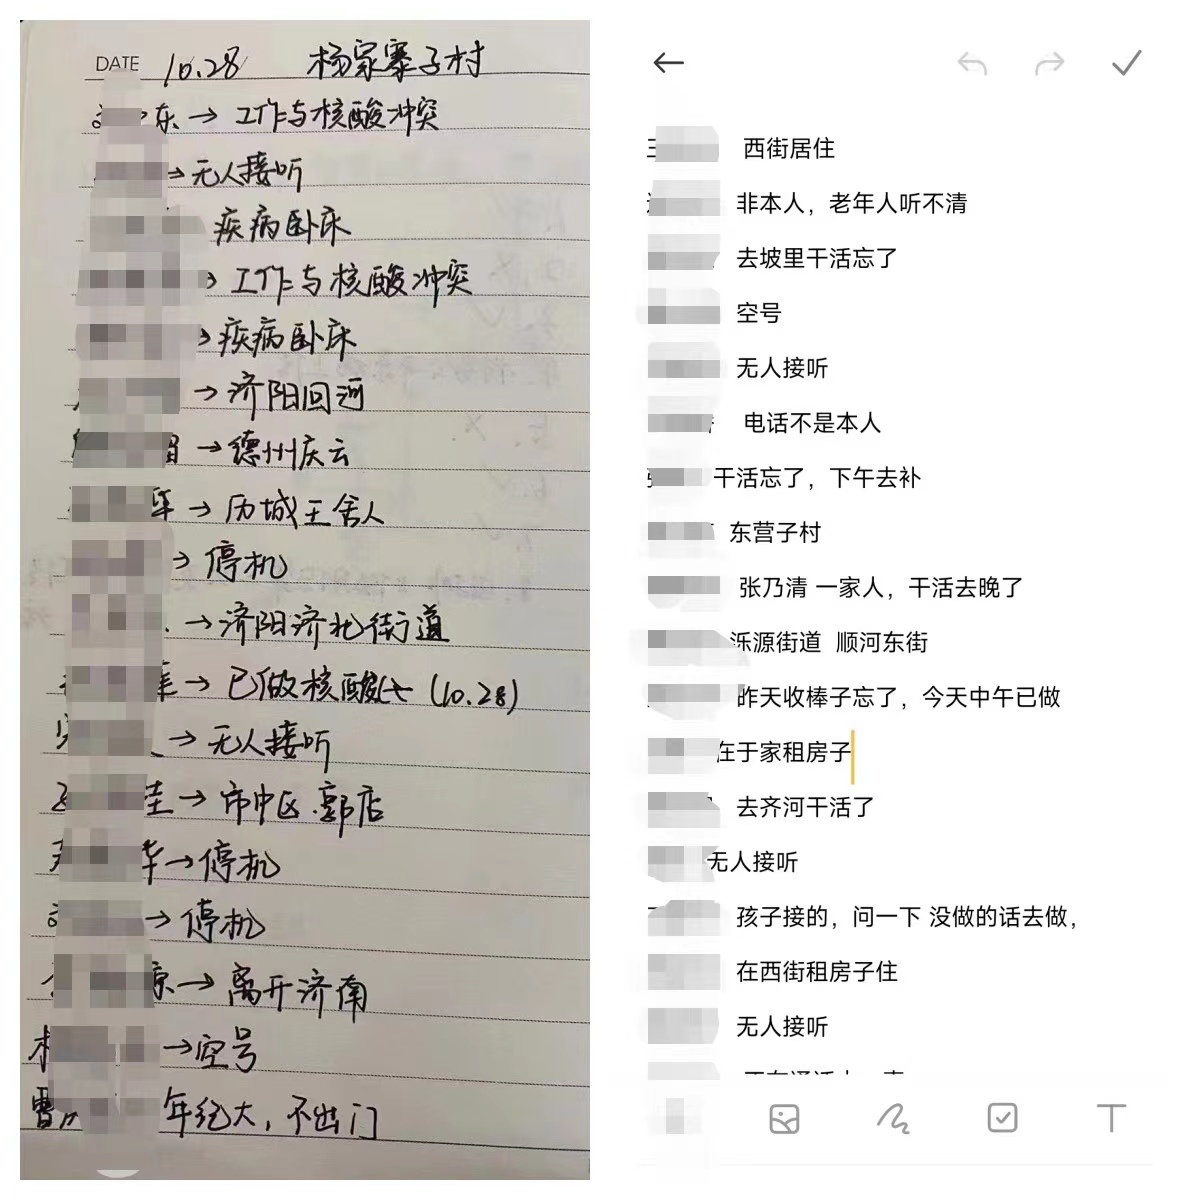 DATE 10.28 杨家寨子村
东→工作与核酸冲突
→无人接听
疾病卧床
→工作与核酸冲突
→疾病卧床
→济阳回河
→德州庆云
→历城王舍人
→停机
→济阳济北街道
→已做核酸 (10.28)
→无人接听
→市中区.郭店
华→停机
→停机
→离开济南
→空号
年纪大,不出门
西街居住
非本人，老年人听不清
去坡里干活忘了
空号
无人接听
电话不是本人
干活忘了，下午去补
东营子村
张乃清 一家人，干活去晚了
泺源街道 顺河东街
昨天收棒子忘了，今天中午已做
在于家租房子
去齐河干活了
无人接听
孩子接的，问一下 没做的话去做，
在西街租房子住
无人接听